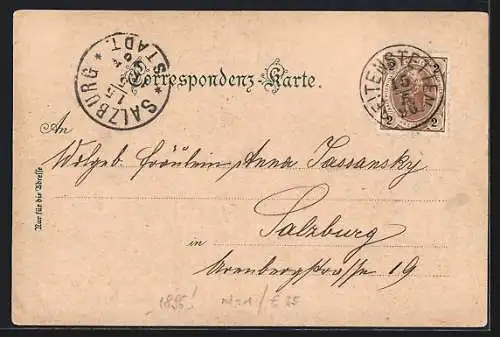 SALZBURG STADT.
Correspondenz-Karte.
2 2
An
Wolgeb. Fräulein Anna Sassansky
Salzburg
in
Arenbergstrasse 19
Nur für die Adresse
1895!